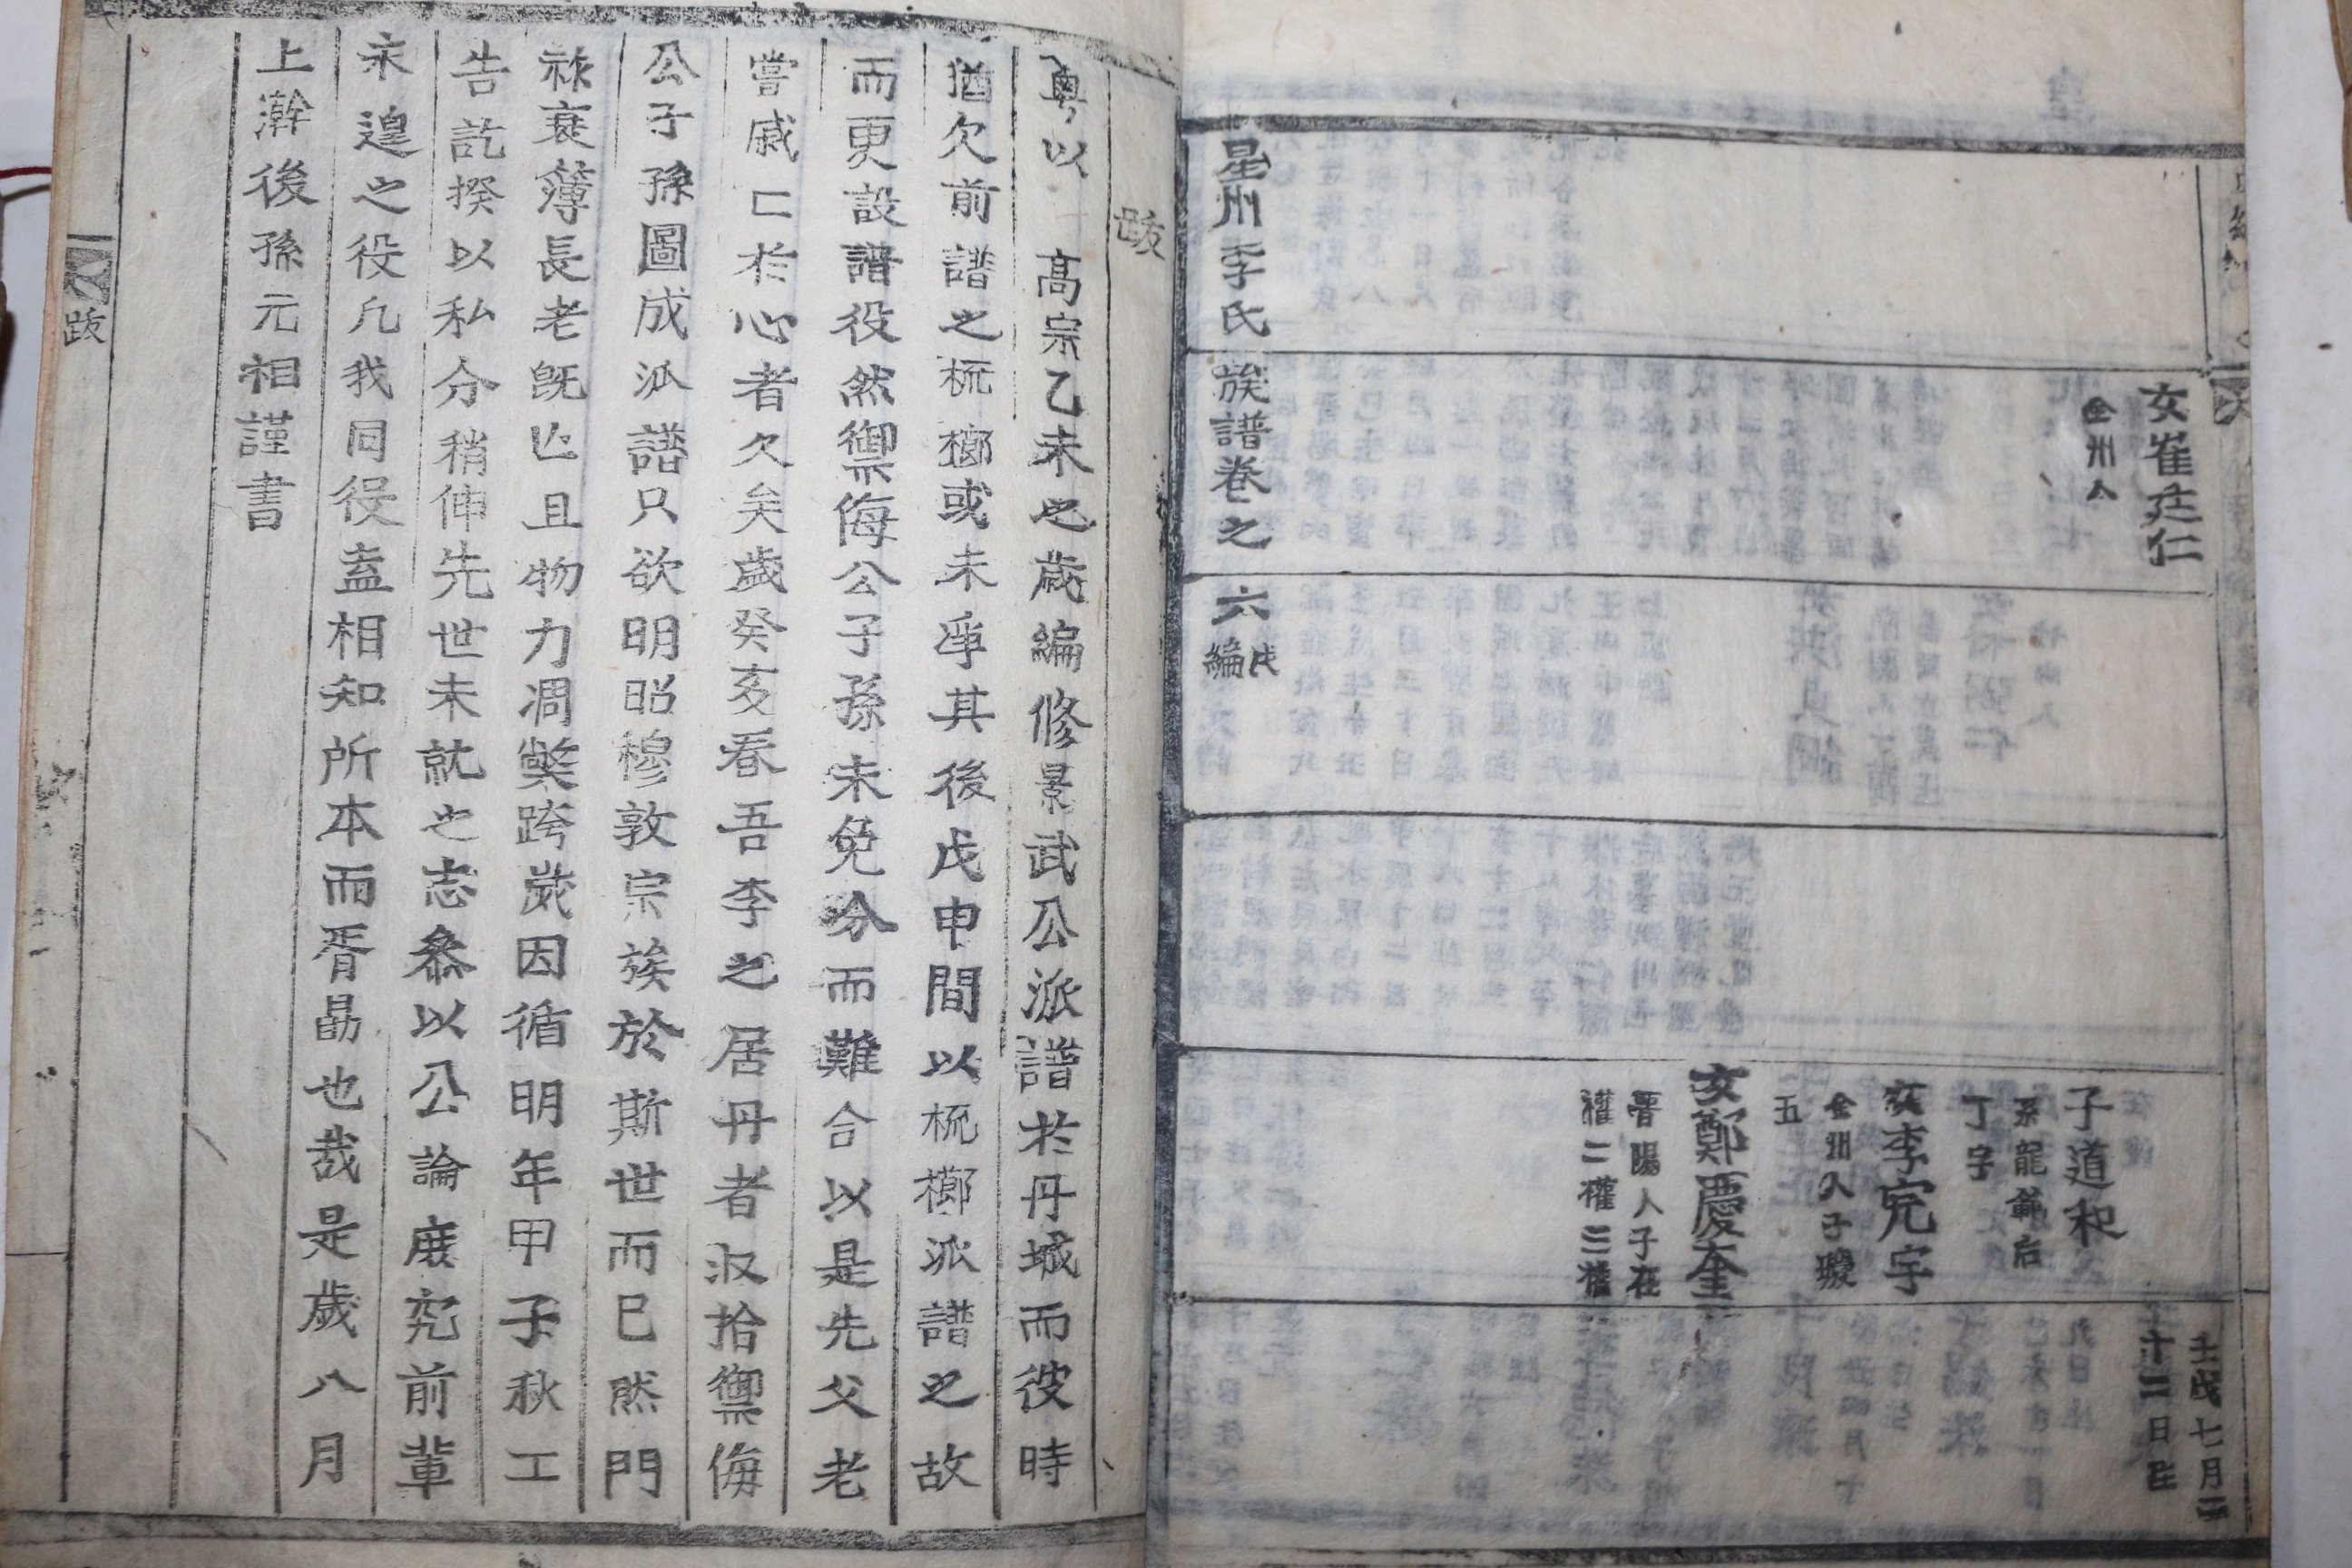 女崔廷仁
全州人
壬戌七月二
十二日生
子道和
系龍範后
丁字
女李宪宇
全州人子璇
五
女鄭慶奎
晋陽人子在
權二權三權
星州李氏族譜卷之六 戊編
跋
粤以 高宗乙未也歲編修景武公派譜於丹城而彼時
猶欠前譜之梳櫛或未孚其後戊申間以梳櫛派譜之故
而更設譜役然禦侮公子孫未免分而難合以是先父老
嘗戚匚於心者久矣歲癸亥春吾李之居丹者收拾禦侮
公子孫圖成派譜只欲明昭穆敦宗族於斯世而已然門
祿衰簿長老旣亡且物力凋弊跨歲因循明年甲子秋工
告訖揆以私分稍伸先世未就之志叅以公論庶究前輩
未遑之役凡我同役盍相知所本而胥勗也哉是歲八月
上澣後孫元相謹書
跋